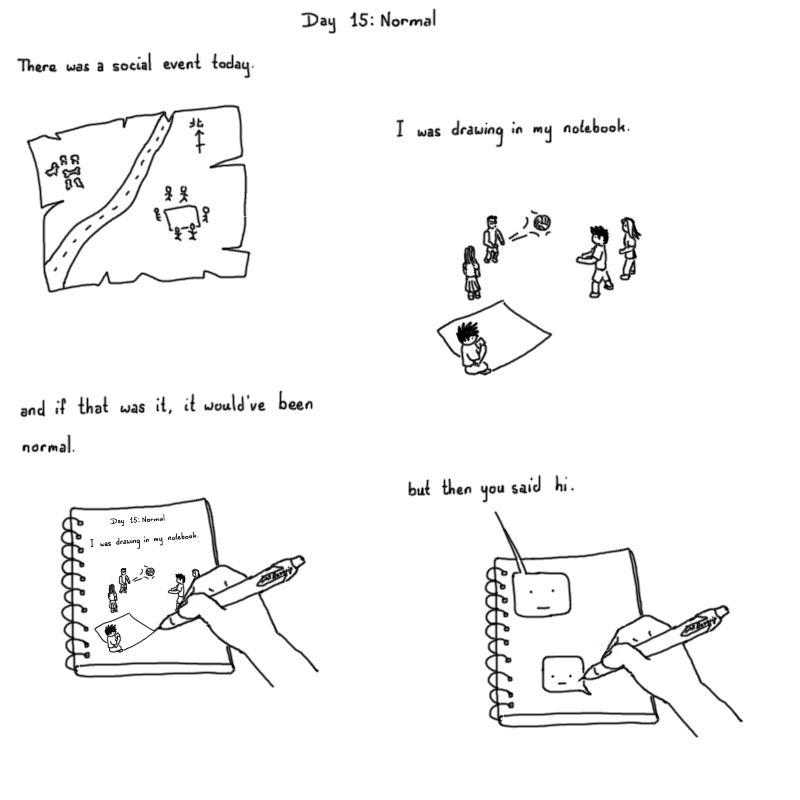 Day 15: Normal
There was a social event today.
北
I was drawing in my notebook.
and if that was it, it would've been
normal.
Day 15: Normal
I was drawing in my notebook.
but then you said hi.